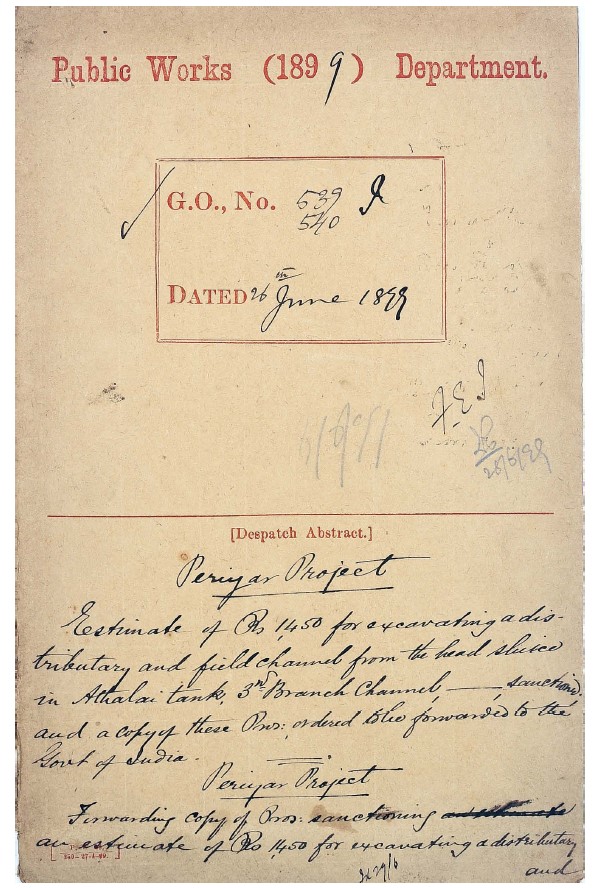 Public Works (1899) Department.
G.O., No. 539 I
540
DATED 26th June 1899
F.E.I
28/6/99
[Despatch Abstract.]
Periyar Project
Estimate of Rs 1,450 for excavating a dis-
tributary and field channel from the head sluice
in Athalai tank, 3rd Branch Channel, ——, sanctiond.
and a copy of these Pros: ordered to be forwarded to the
Govt of India.
Periyar Project
Forwarding copy of Pros: sanctioning an estimate
an estimate of Rs 1,450 for excavating a distributary
and